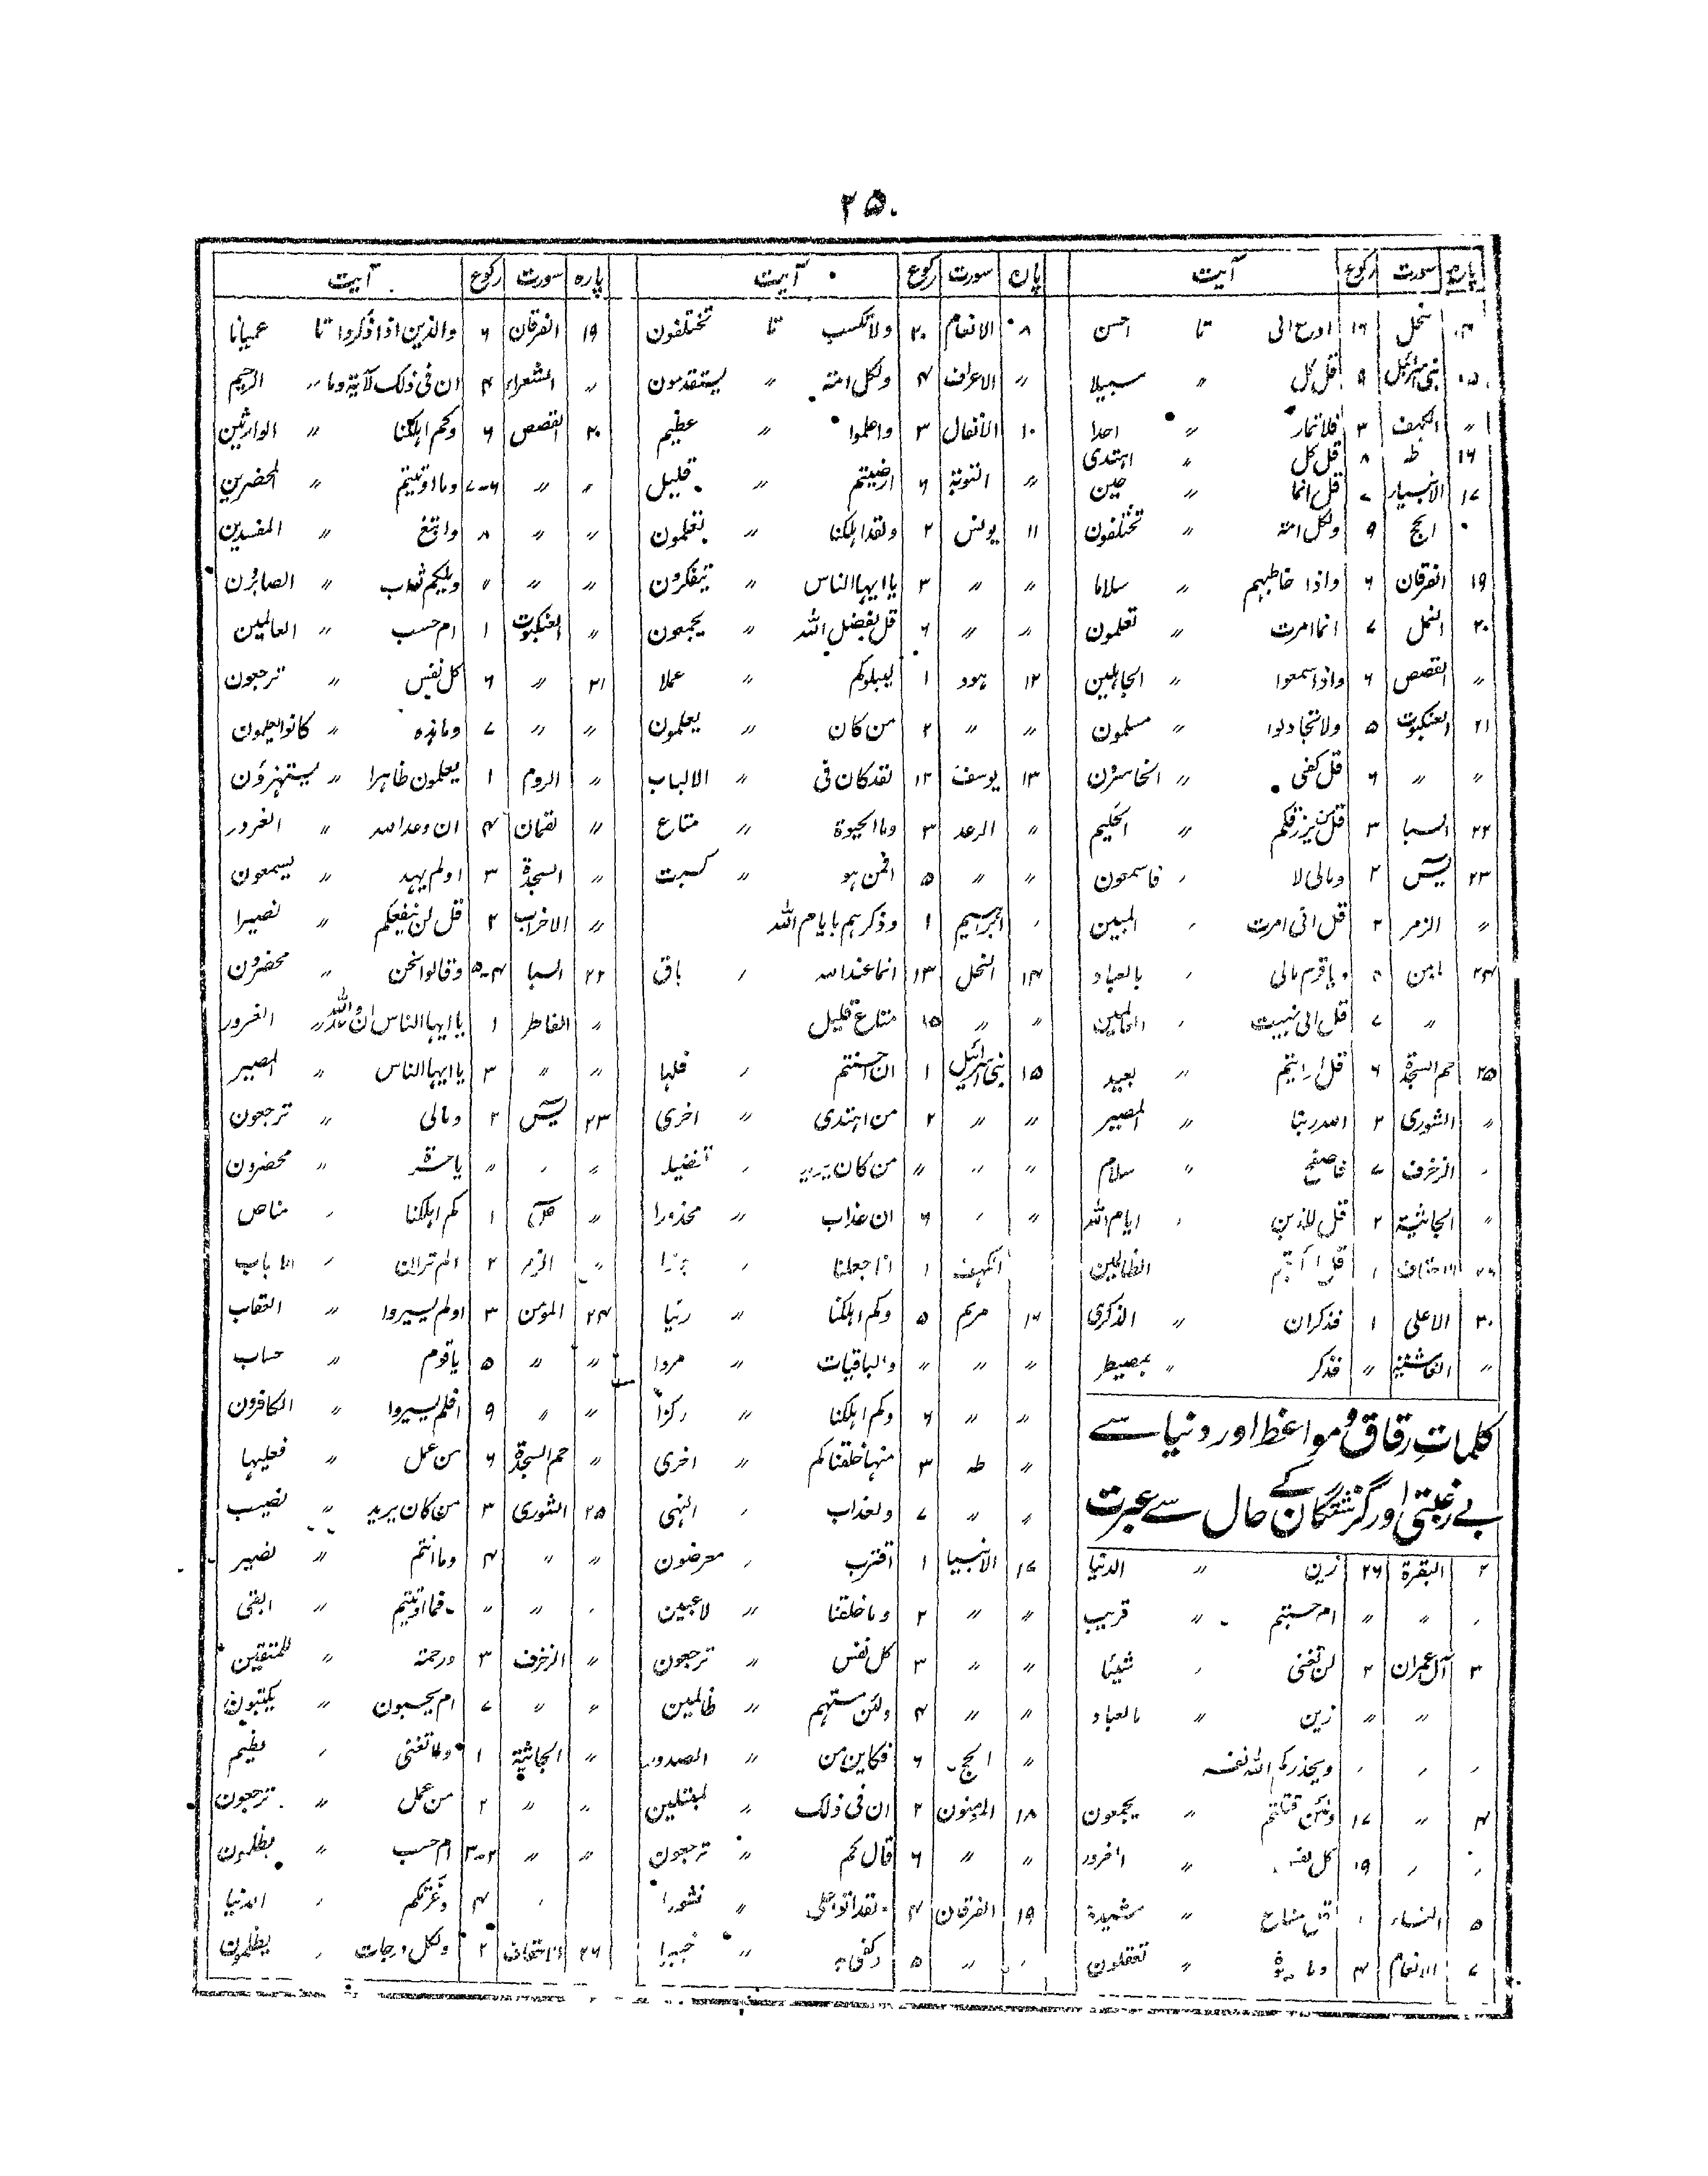 ۲۵۰
پارہ سورت رکوع آیت
نحل ۱۶ ادع الی تا احسن
۱۵ بنی اسرائیل ۹ قل کل 〃 سبیلا
〃 الکہف ۳ فلا تمار 〃 احدا
۱۶ طہ ۸ قل کل 〃 اہتدی
۱۷ الانبیاء ۷ قل انما 〃 حین
الحج ۹ ولکل امۃ 〃 تختلفون
۱۹ الفرقان ۶ واذا خاطبہم 〃 سلاما
۲۰ النمل ۷ انما امرت 〃 تعلمون
〃 القصص ۶ واذا سمعوا 〃 الجاہلین
۲۱ العنکبوت ۵ ولا تجادلوا 〃 مسلمون
〃 〃 ۶ قل کفی 〃 الخاسرون
۲۲ السبا ۳ قل من یرزقکم 〃 الحکیم
۲۳ یٰسٓ ۲ ومالی لا 〃 فاسمعون
〃 الزمر ۲ قل انی امرت 〃 المبین
۲۴ ویا قوم مالی 〃 بالعباد
〃 ۷ قل انی نہیت 〃 العالمین
۲۵ حم السجدۃ ۶ قل ارایتم 〃 بعید
〃 الشوری ۲ اللہ ربنا 〃 المصیر
〃 الزخرف ۷ فاصفح 〃 سلام
〃 الجاثیۃ ۲ قل للذین 〃 ایام اللہ
۲۶ الاحقاف ۱ قل ارأیتم الظالمین
۳۰ الاعلی ۱ فذکر ان 〃 الذکری
〃 الغاشیۃ 〃 فذکر 〃 بمصیطر
کلمات رقاق و مواعظ اور دنیا سے
بے رغبتی اور گزشتگان کے حال سے عبرت
۲ البقرۃ ۲۶ زین 〃 الدنیا
〃 〃 〃 ام حسبتم 〃 قریب
۳ آل عمران ۲ لن تغنی 〃 شیئا
〃 〃 زین 〃 بالعباد
〃 〃 〃 ویحذرکم اللہ نفسہ
۴ 〃 ۱۷ ولئن قتلتم 〃 یجمعون
〃 〃 ۱۹ کل نفس 〃 الغرور
۵ النساء قل متاع 〃 مشیدۃ
۷ الانعام ۴ 〃 تعقلون
پارہ سورت رکوع آیت
۸ الانعام ۲۰ ولا تکسب تا تختلفون
〃 الاعراف ۴ ولکل امۃ 〃 یستقدمون
۱۰ الانفال ۳ واعلموا 〃 عظیم
〃 التوبۃ ۶ ارضیتم 〃 قلیل
۱۱ یونس ۲ ولقد اہلکنا 〃 تعلمون
〃 〃 ۳ یا ایہا الناس 〃 یتفکرون
〃 〃 ۶ قل بفضل اللہ 〃 یجمعون
۱۲ ہود ۱ لیبلوکم 〃 عملا
〃 〃 ۲ من کان 〃 یعلمون
۱۳ یوسف ۱۲ لقد کان فی 〃 الالباب
〃 الرعد ۳ وما الحیوۃ 〃 متاع
〃 〃 ۵ افمن ہو 〃 کسبت
〃 ابراہیم ۱ وذکرہم بایام اللہ
۱۴ النحل ۱۳ انما عند اللہ 〃 باق
〃 〃 ۱۵ متاع قلیل
۱۵ بنی اسرائیل ۱ ان احسنتم 〃 فلہا
〃 〃 ۲ من اہتدی 〃 اخری
〃 〃 〃 من کان یرید 〃 تفضیلا
〃 〃 ۶ ان عذاب 〃 محذورا
الکہف ۱ انا جعلنا 〃
۱۶ مریم ۵ وکم اہلکنا 〃 رئیا
〃 〃 〃 والباقیات 〃 مردا
〃 〃 ۶ وکم اہلکنا 〃 رکزا
〃 طہ ۳ منہا خلقناکم 〃 اخری
〃 〃 ۷ ولعذاب 〃 النہی
۱۷ الانبیا ۱ اقترب 〃 معرضون
〃 〃 ۲ وما خلقنا 〃 لاعبین
〃 〃 ۳ کل نفس 〃 ترجعون
〃 〃 ۴ ولئن مستہم 〃 ظالمین
〃 الحج ۶ فکاین من 〃 الصدور
۱۸ المومنون ۲ ان فی ذلک 〃 لمبتلین
〃 〃 ۶ قال کم 〃 ترجعون
۱۹ الفرقان ۴ ولقد اتوا علی 〃 نشورا
〃 〃 ۵ وکفی بہ 〃 خبیرا
پارہ سورت رکوع آیت
۱۹ الفرقان ۶ والذین اذا ذکروا تا عمیانا
〃 الشعراء ۴ ان فی ذلک لآیۃ وما 〃 الرحیم
۲۰ القصص ۶ وکم اہلکنا 〃 الوارثین
〃 〃 ۶-۷ وما اوتیتم 〃 المحضرین
〃 〃 ۸ وابتغ 〃 المفسدین
〃 〃 〃 ویلکم ثواب 〃 الصابرون
〃 العنکبوت ۱ ام حسب 〃 العالمین
۲۱ 〃 ۶ کل نفس 〃 ترجعون
〃 〃 ۷ وما ہذہ 〃 کانوا یعلمون
〃 الروم ۱ یعلمون ظاہرا 〃 یستہزؤن
〃 لقمان ۴ ان وعد اللہ 〃 الغرور
〃 السجدۃ ۳ اولم یہد 〃 یسمعون
〃 الاحزاب ۲ قل لن ینفعکم 〃 نصیرا
۲۲ السبا ۴-۵ وقالوا نحن 〃 محضرون
〃 الفاطر ۱ یا ایہا الناس ان وعد اللہ 〃 الغرور
〃 〃 ۳ یا ایہا الناس 〃 المصیر
۲۳ یٰسٓ ۲ ومالی 〃 ترجعون
〃 〃 〃 یا حسرۃ 〃 محضرون
〃 صٓ ۱ کم اہلکنا 〃 مناص
〃 الزمر ۲ الم تر ان 〃 الالباب
۲۴ المؤمن ۳ اولم یسیروا 〃 العقاب
〃 〃 ۵ یا قوم 〃 حساب
〃 〃 ۹ افلم یسیروا 〃 الکافرون
〃 حم السجدۃ ۶ من عمل 〃 فعلیہا
۲۵ الشوری ۳ من کان یرید 〃 نصیب
〃 〃 ۴ وما انتم 〃 نصیر
〃 〃 〃 فما اوتیتم 〃 ابقی
〃 الزخرف ۳ ورحمۃ 〃 للمتقین
〃 〃 ۷ ام یحسبون 〃 یکتبون
〃 الجاثیۃ ۱ ولا تغنی 〃 عظیم
〃 〃 ۲ من عمل 〃 ترجعون
〃 〃 ۲-۳ ام حسب 〃 یظلمون
〃 ۴ وغرتکم 〃 الدنیا
۲۶ الاحقاف ۲ ولکل درجات 〃 یظلمون